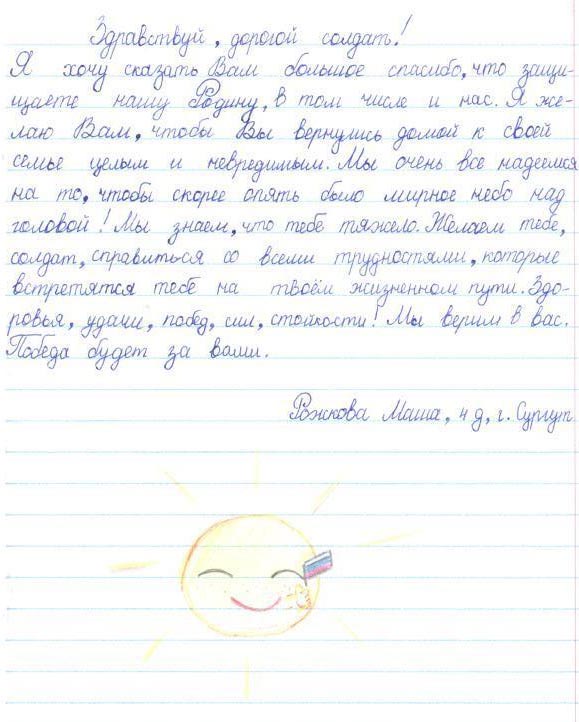 Здравствуй, дорогой солдат!
Я хочу сказать Вам большое спасибо, что защи-
щаете нашу Родину, в том числе и нас. Я же-
лаю Вам, чтобы Вы вернулись домой к своей
семье целым и невредимым. Мы очень все надеемся
на то, чтобы скорее опять было мирное небо над
головой! Мы знаем, что тебе тяжело. Желаем тебе,
солдат, справиться со всеми трудностями, которые
встретятся тебе на твоём жизненном пути. Здо-
ровья, удачи, побед, сил, стойкости! Мы верим в вас.
Победа будет за вами.
Рожкова Маша, 4 д, г. Сургут